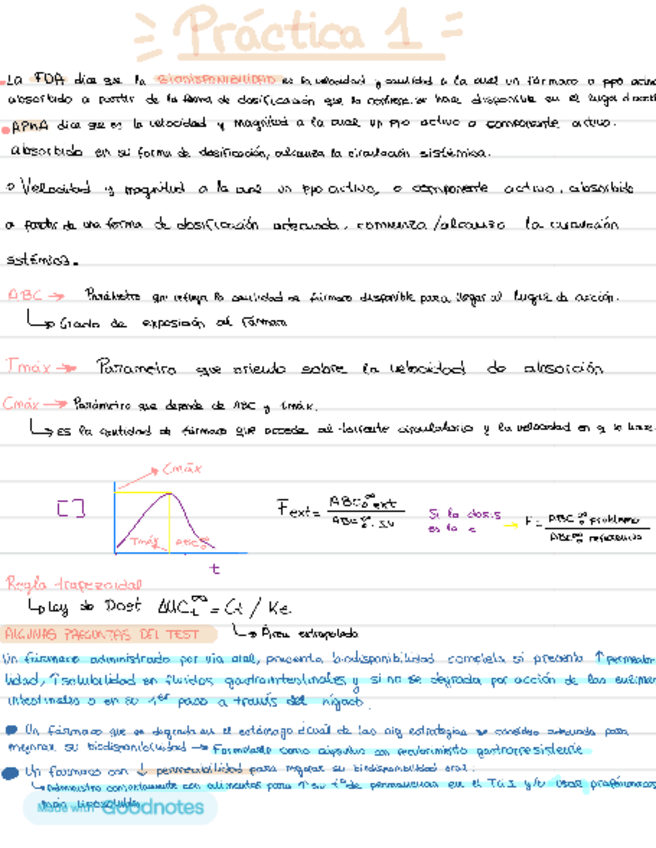 Práctica 1
La FDA dice que la BIODISPONIBILIDAD es la velocidad y cantidad a la cual un fármaco o ppo
absorbido a partir de la forma de dosificación que lo contiene. se hace disponible en el lugar
APhA dice que es la velocidad y magnitud a la cual un ppo activo o componente activo.
absorbido en su forma de dosificación, alcanza la circulación sistémica.
o Velocidad y magnitud a la cual un ppo activo, o componente activo, absorbido
a partir de una forma de dosificación adecuada, comienza/alcanza la circulación
sistémica.
ABC → Parámetro que refleja la cantidad de fármaco disponible para llegar al lugar de acción.
↳ Grado de exposición al fármaco
Tmáx → Parámetro que orienta sobre la velocidad de absorción
Cmáx → Parámetro que depende de ABC y tmáx.
↳ es la cantidad de fármaco que accede al torrente circulatorio y la velocidad en q lo hace
Cmáx
[ ]
Tmáx ABC₀^∞
t
Fext = ABC₀^∞ ext / ABC₀^∞ . sv
Si la dosis es la =
→ F = ABC₀^∞ problema / ABC₀^∞ referencia
Regla trapezoidal
↳ Ley de Dost AUC_t^∞ = Ct / Ke.
↳ Área extrapolada
ALGUNAS PREGUNTAS DEL TEST
Un fármaco administrado por vía oral, presenta biodisponibilidad completa si presenta ↑
lidad, ↑ solubilidad en fluidos gastrointestinales y si no se degrada por acción de las
intestinales o en su 1er paso a través del hígado.
Un fármaco que se degrada en el estómago ¿cuál de las sig estrategias se considera adecuada para
mejorar su biodisponibilidad → Formularlo como cápsulas con recubrimiento gastrorresistente
Un fármaco con ↓ permeabilidad para mejorar su biodisponibilidad oral.
↳ Administra conjuntamente con alimentos para ↑ su tº de permanencia en el TGI y/o usar profármacos
más liposolubles
Made with Goodnotes